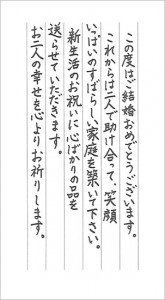 この度はご結婚おめでとうございます。
これからは二人で助け合って、笑顔
いっぱいのすばらしい家庭を築いて下さい。
新生活のお祝いに心ばかりの品を
送らせていただきます。
お二人の幸せを心よりお祈りします。